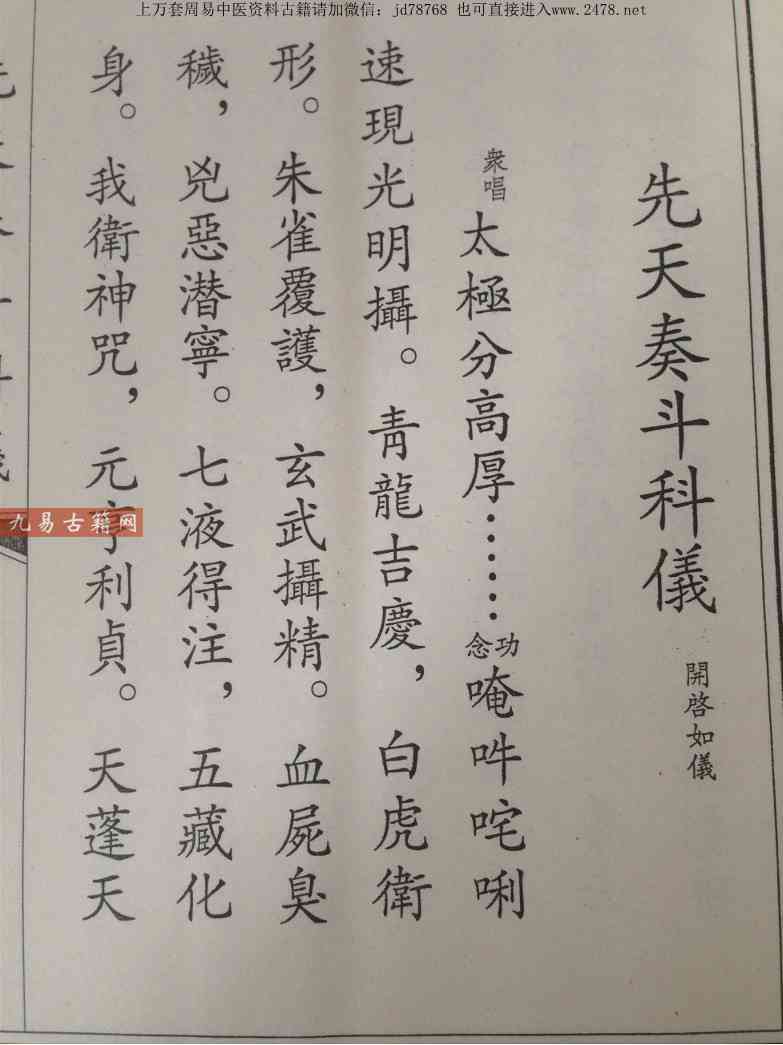 上万套周易中医资料古籍请加微信：jd78768 也可直接进入www.2478.net
先天奏斗科儀
開啓如儀
衆唱 太極分高厚⋯⋯ 功念 唵吽咤唎
速現光明攝。青龍吉慶，白虎衛
形。朱雀覆護，玄武攝精。血屍臭
穢，兇惡潜寧。七液得注，五藏化
身。我衛神咒，元亨利貞。天蓬天
九易古籍网